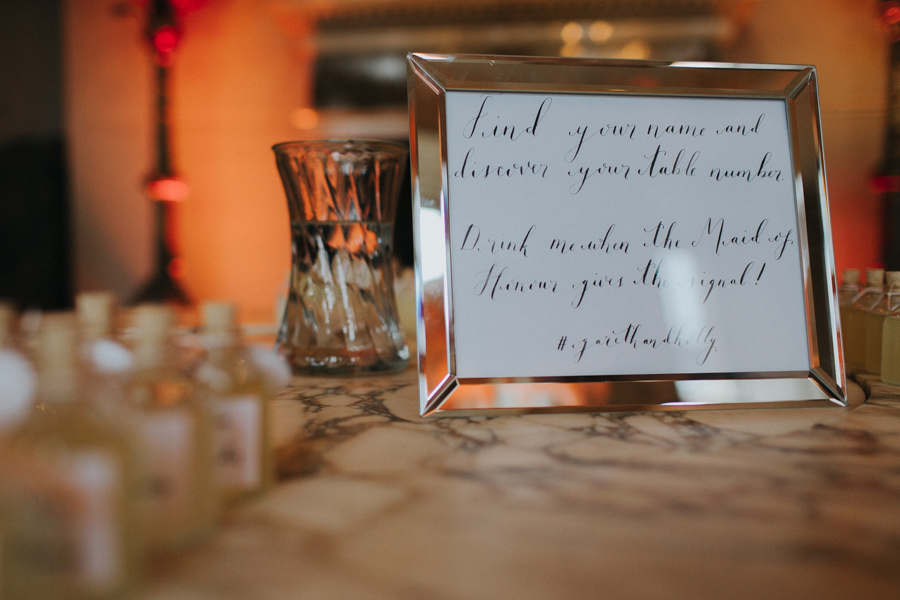 Find your name and
discover your table number.
Drink me when the Maid of
Honour gives the signal!
#garethandholly